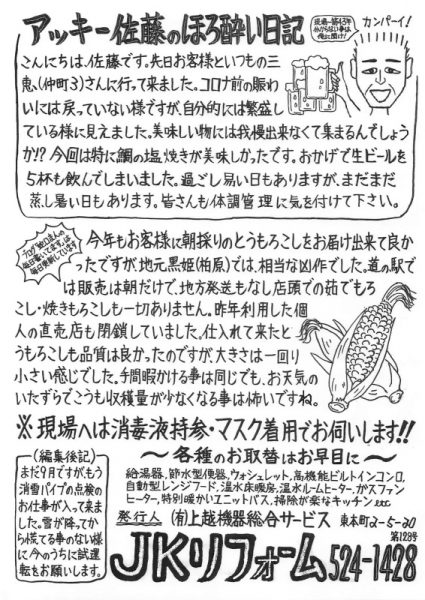 アッキー佐藤のほろ酔い日記
カンパーイ!
こんにちは、佐藤です。先日お客様といつもの三
恵、(仲町3)さんに行って来ました。コロナ前の賑わ
いには戻っていない様ですが、自分的には繁盛し
ている様に見えました。美味しい物には我慢出来なくて集まるんでしょう
か!? 今回は特に鯛の塩焼きが美味しかったです。おかげで生ビールを
5杯も飲んでしまいました。過ごし易い日もありますが、まだまだ
蒸し暑い日もあります。皆さんも体調管理に気を付けて下さい。
今年もお客様に朝採りのとうもろこしをお届け出来て良か
ったですが、地元黒姫(柏原)では、相当な凶作でした。道の駅で
は販売は朝だけで、地方発送もなし店頭での茹でもろ
こし・焼きもろこしも一切ありません。昨年利用した個
人の直売店も閉鎖していました。仕入れて来たと
うもろこしも品質は良かったのですが、大きさは一回り
小さい感じでした。手間暇かける事は同じでも、お天気の
いたずらでこうも収穫量が少なくなる事は怖いですね。
※現場へは消毒液持参・マスク着用でお伺いします!!
〜各種のお取替はお早目に〜
給湯器、節水型便器、ウォシュレット、高機能ビルトインコンロ、
自動型レンジフード、温水床暖房、温水ルームヒーター、ガスファン
ヒーター、特別暖かいユニットバス、掃除が楽なキッチン etc
(編集後記)
まだ9月ですがもう
消雪パイプの点検の
お仕事が入って来ま
した。雪が降ってか
ら慌てる事のない様
に今のうちに試運
転をお願いします。
発行人 (有)上越機器総合サービス 東本町2-5-20
第128号
JKリフォーム 524-1428